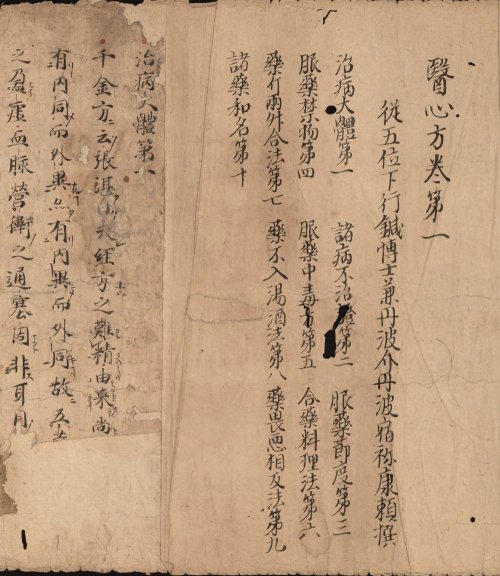 醫心方卷第一
從五位下行鍼博士兼丹波介丹波宿祢康頼撰
治病大體第一 諸病不治證第二 服藥節度第三
服藥禁物第四 服藥中毒方第五 合藥料理法第六
藥斤兩升合法第七 藥不入湯酒法第八 藥畏惡相反法第九
諸藥和名第十
治病大體第一
千金方云張湛曰夫經方之難精由來尚
有内同而外異亦有内異而外同故五
之盈虚血脉營衛之通塞固非耳目